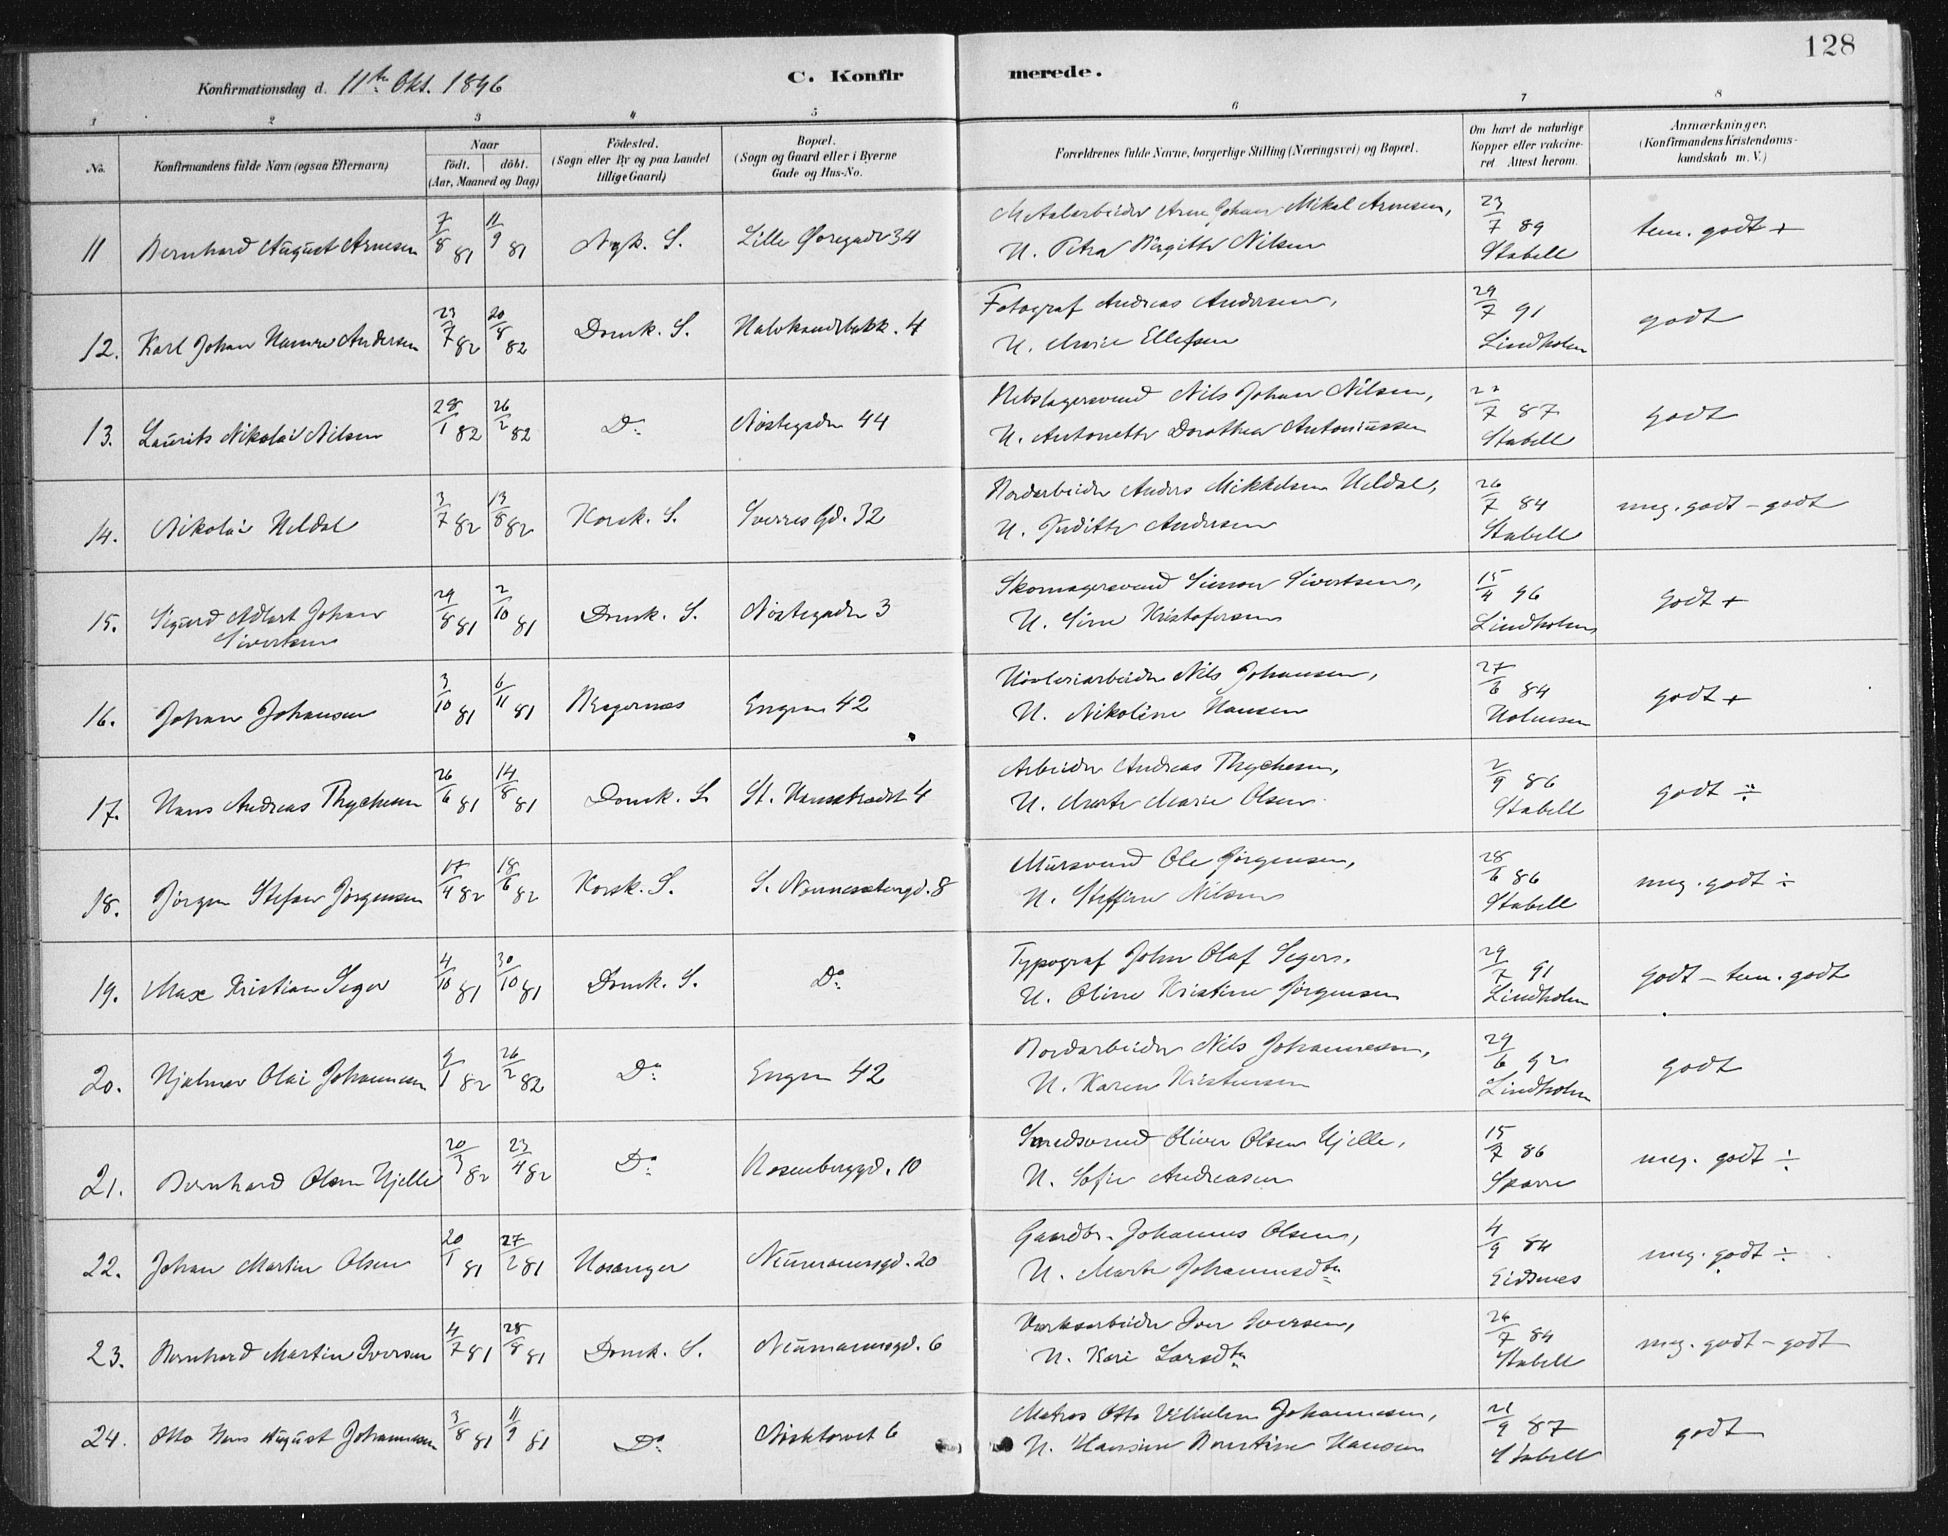 128
Konfirmationsdag d. 11te Okt. 1896
C. Konfirmerede.
1 2 3 4 5 6 7 8
No. | Konfirmandens fulde Navn (ogsaa Efternavn) | Naar födt. döbt. (Aar, Maaned og Dag) | Födested. (Sogn eller By og paa Landet tillige Gaard) | Bopæl. (Sogn og Gaard eller i Byerne Gade og Hus-No. | Forældrenes fulde Navne, borgerlige Stilling (Næringsvei) og Bopæl. | Om havt de naturlige Kopper eller vakcineret. Attest herom. | Anmærkninger. (Konfirmandens Kristendomskundskab m. V.)
11 Bernhard August Arnesen 7/8 81 11/9 81 Nyk. S. Lille Øregade 34 Metalarbeider Arne Johan Mikal Arnesen, 23/7 89 tem. godt +
H. Petra Birgitte Nilsen Stabell
12. Karl Johan Andersen 23/7 82 20/8 82 Domk. S. 4 Fotograf Andreas Andersen, 29/7 91 godt
H. Marie Ellefsen Lindholm
13. Laurits Nikolai Nilsen 28/1 82 26/2 82 Do Nøstegaden 44 Rebslagersvend Nils Johan Nilsen, 22/7 87 godt
H. Antonette Dorothea Antoniussen Stabell
14. Nikolai Heldal 3/7 82 13/8 82 Korsk. S. Sverres Gd. 32 Bordarbeider Anders Mikkelsen Heldal, 26/7 84 meg. godt - godt
H. Juditte Andersen Stabell
15. Sigurd Adlart Johan 29/8 81 2/10 81 Domk. S. Nøstegaden 3 Skomagersvend Simon Sivertsen, 15/4 96 godt +
Sivertsen H. Sine Kristofersen Lindholm
16. Johan Johansen 3/10 81 6/11 81 Bragernæs Engen 42 Høvleriarbeider Nils Johansen, 27/6 84 godt +
H. Nikoline Hansen Holmsen
17. Hans Andreas Thychesen 26/6 81 14/8 81 Domk. S. St. Hansstrædet 4 Arbeider Andreas Thychesen, 2/9 86 godt ÷
H. Marte Marie Olsen Stabell
18. Jørgen Stefan Jørgensen 17/4 82 18/6 82 Korsk. S. S. Nonnesætergd. 8 Mursvend Ole Jørgensen, 28/6 86 meg. godt ÷
H. Steffine Nilsen Stabell
19. Max Kristian Seger 4/10 81 30/10 81 Domk. S. Do Typograf John Olaf Segers, 29/7 91 godt - tem. godt
H. Oline Kristine Jørgensen Lindholm
20. Hjalmar Olai Johannesen 9/1 82 26/2 82 Do Engen 42 Bordarbeider Nils Johannesen, 29/6 92 godt
H. Karen Kristensen Lindholm
21. Bernhard Olsen Hjelle 20/3 82 23/4 82 Do Rosenberggd. 10 Smedsvend Oliver Olsen Hjelle, 15/7 86 meg. godt ÷
H. Sofie Andreasen Sparre
22. Johan Martin Olsen 20/1 81 27/2 81 Hosanger Neumannsgd. 20 Gaardbr. Johannes Olsen, 4/9 84 meg. godt ÷
H. Marte Johannesdtr Eidsnes
23. Bernhard Martin Iversen 4/7 81 28/8 81 Domk. S. Neumannsgd. 6 Værksarbeider Iver Iversen, 26/7 84 meg. godt - godt
H. Kari Larsdtr Stabell
24. Otto Hans August Johannesen 3/8 81 11/9 81 Do Nøsktorvet 6 Matros Otto Vilhelm Johannesen, 21/9 87 godt
H. Hansine Berntine Hansen Stabell